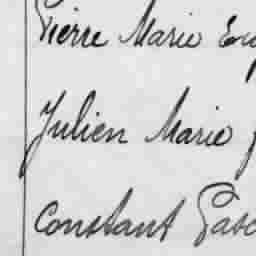 Pierre Marie Eug
Julien Marie
Constant Pasc